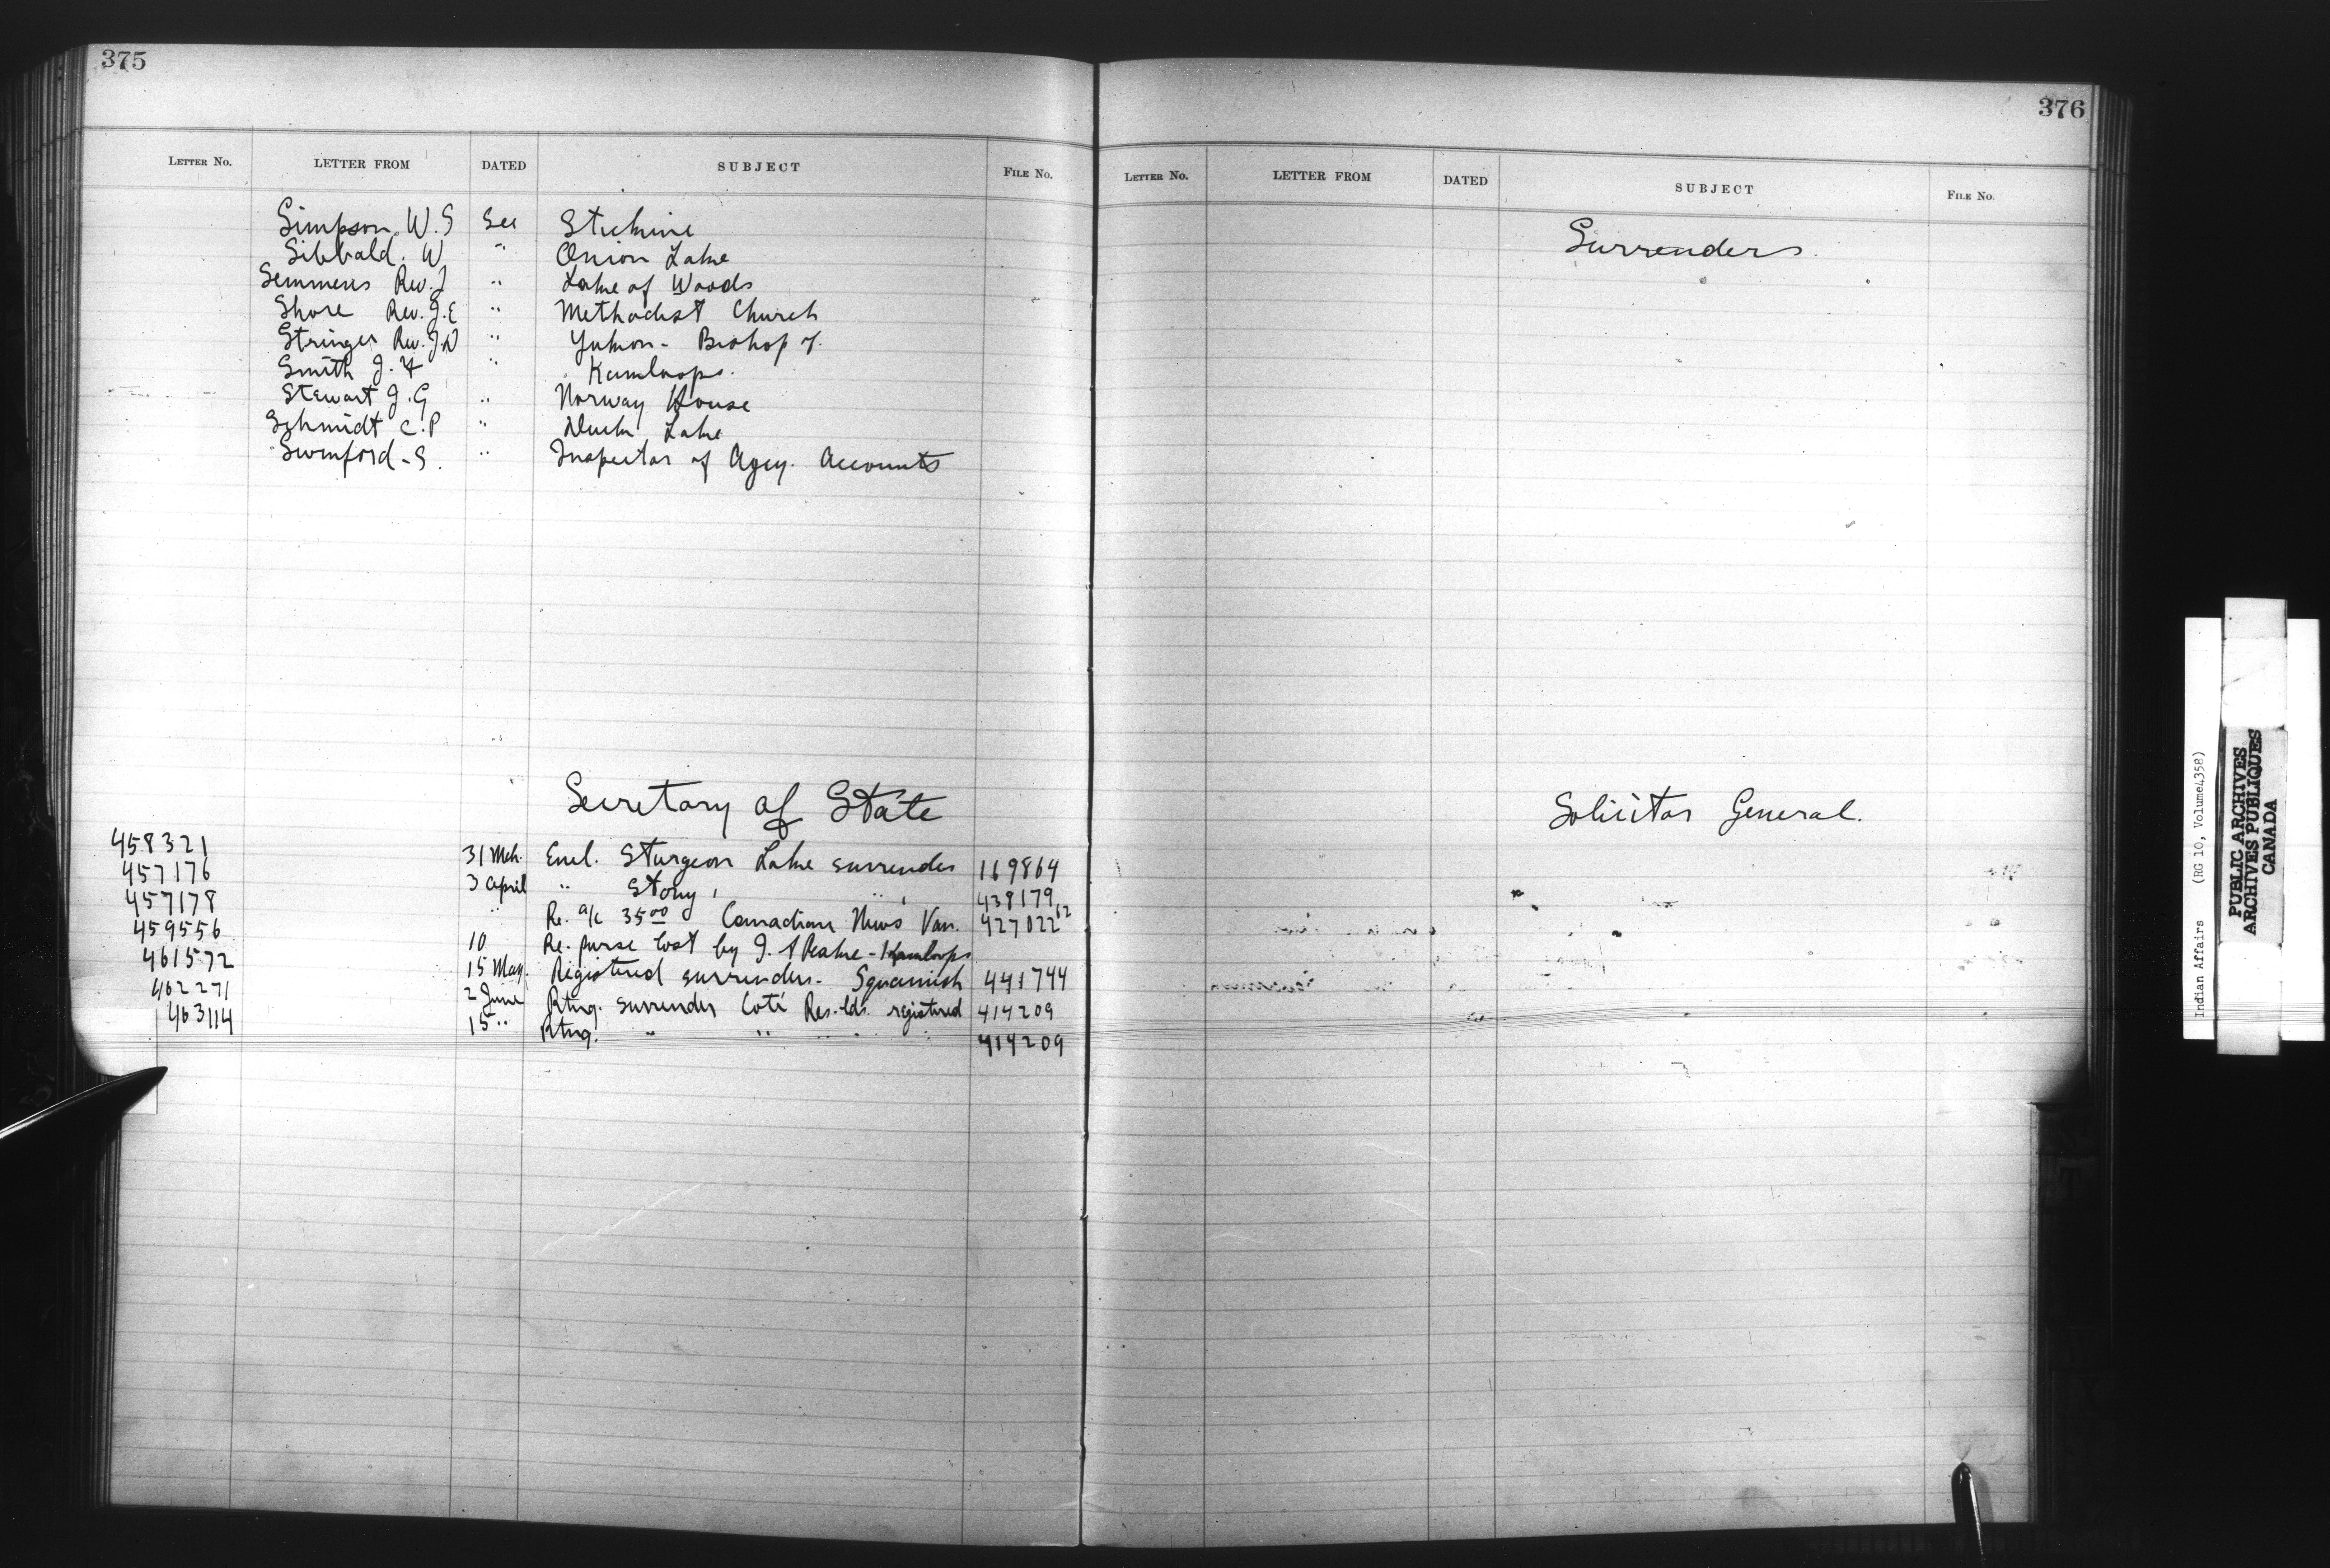 375
LETTER No. LETTER FROM DATED SUBJECT FILE No.
Simpson, W.S See Stickine
Sibbald. W " Onion Lake
Semmens Rev. J " Lake of Woods
Shore Rev. J.E " Methodist Church
Stringer Rev. J.W " Yukon - Bishop of.
Smith J. F " Kamloops.
Stewart J. G " Norway House
Schmidt C.P " Duck Lake
Swinford - S. " Inspector of Agcy. Accounts
Secretary of State
458321 31 Mch. Encl. Sturgeon Lake surrender 169864
457176 3 April " Stony " 438179
457178 " Re. a/c 35.00 Canadian News Van. 427022 12
459556 10 Re. purse lost by J. Kamloops
461572 15 May. Registered surrender - Squamish 441744
462271 2 June Rtng. surrender Coté Res. lds. registered 414209
463114 15 " Rtng. " " " " 414209
376
LETTER No. LETTER FROM DATED SUBJECT FILE No.
Surrenders.
Solicitor General.
Indian Affairs (RG 10, Volume 4358)
PUBLIC ARCHIVES
ARCHIVES PUBLIQUES
CANADA